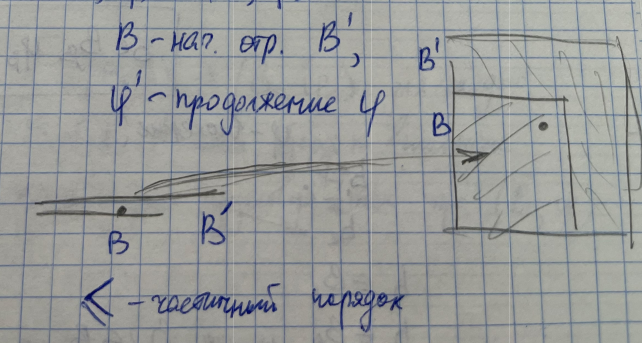 B – нач. отр. B′,
φ′ – продолжение φ
B′
B
B
B′
< – частичный порядок